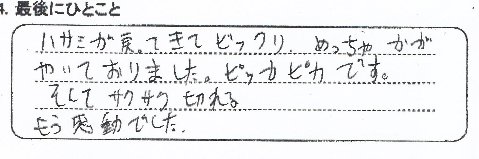 4. 最後にひとこと
ハサミが戻ってきてビックリ. めっちゃ かが
やいて おりました。ピッカピカ です。
そして サクサク 切れる
もう感動でした.